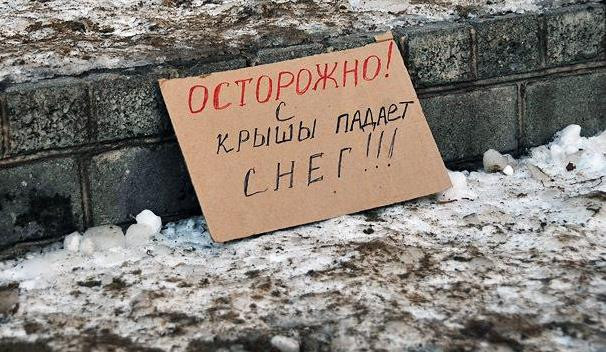 ОСТОРОЖНО!
С
КРЫШЫ ПАДАЕТ
СНЕГ!!!